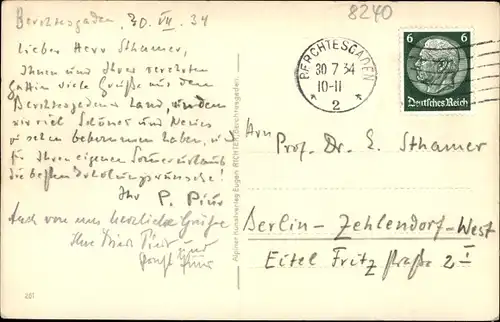 Berchtesgaden, 30. VII. 34
8240
Lieber Herr Sthamer,
Ihnen und Ihrer verehrten
Gattin viele Grüße aus dem
Berchtesgadener Land, in dem
wir viel Schönes und Neues
zu sehen bekommen haben, und
für Ihren eigenen Sommerurlaub
die besten Erholungswünsche!
Ihr P. Piur
Auch von uns herzliche Grüße
Ihre Piur und
Piur
201
Alpiner Kunstverlag Eugen Richter, Berchtesgaden.
BERCHTESGADEN
30 7 34
10-11
2
6 6
Deutsches Reich
Herrn
Prof. Dr. E. Sthamer
Berlin-Zehlendorf-West
Eitel Fritz straße 2 I